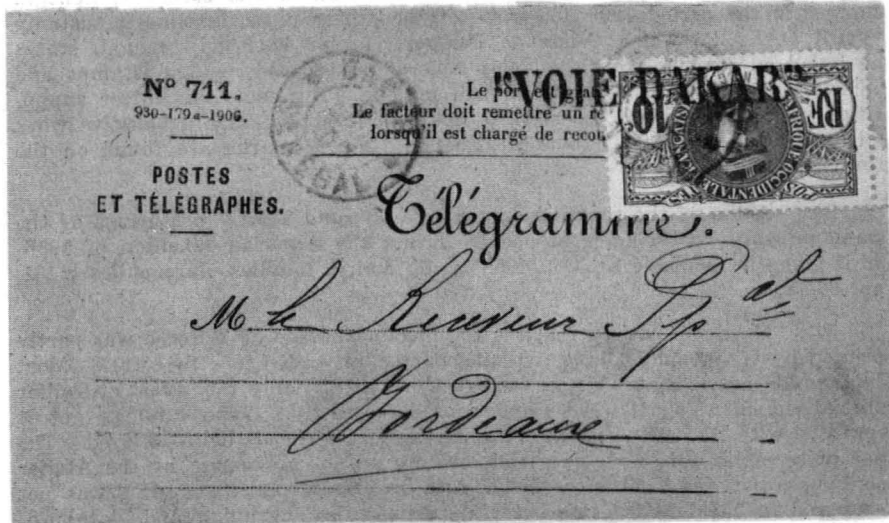 N° 711.
930-179a-1906.
POSTES
ET TÉLÉGRAPHES.
Le port est gra
Le facteur doit remettre un ré
lorsqu'il est chargé de recou
"VOIE DAKAR"
RF
10
AFRIQUE OCCIDENTALE FRANÇAISE
POSTES
SÉNÉGAL
Télégramme.
M le Receveur Ppal
Bordeaux